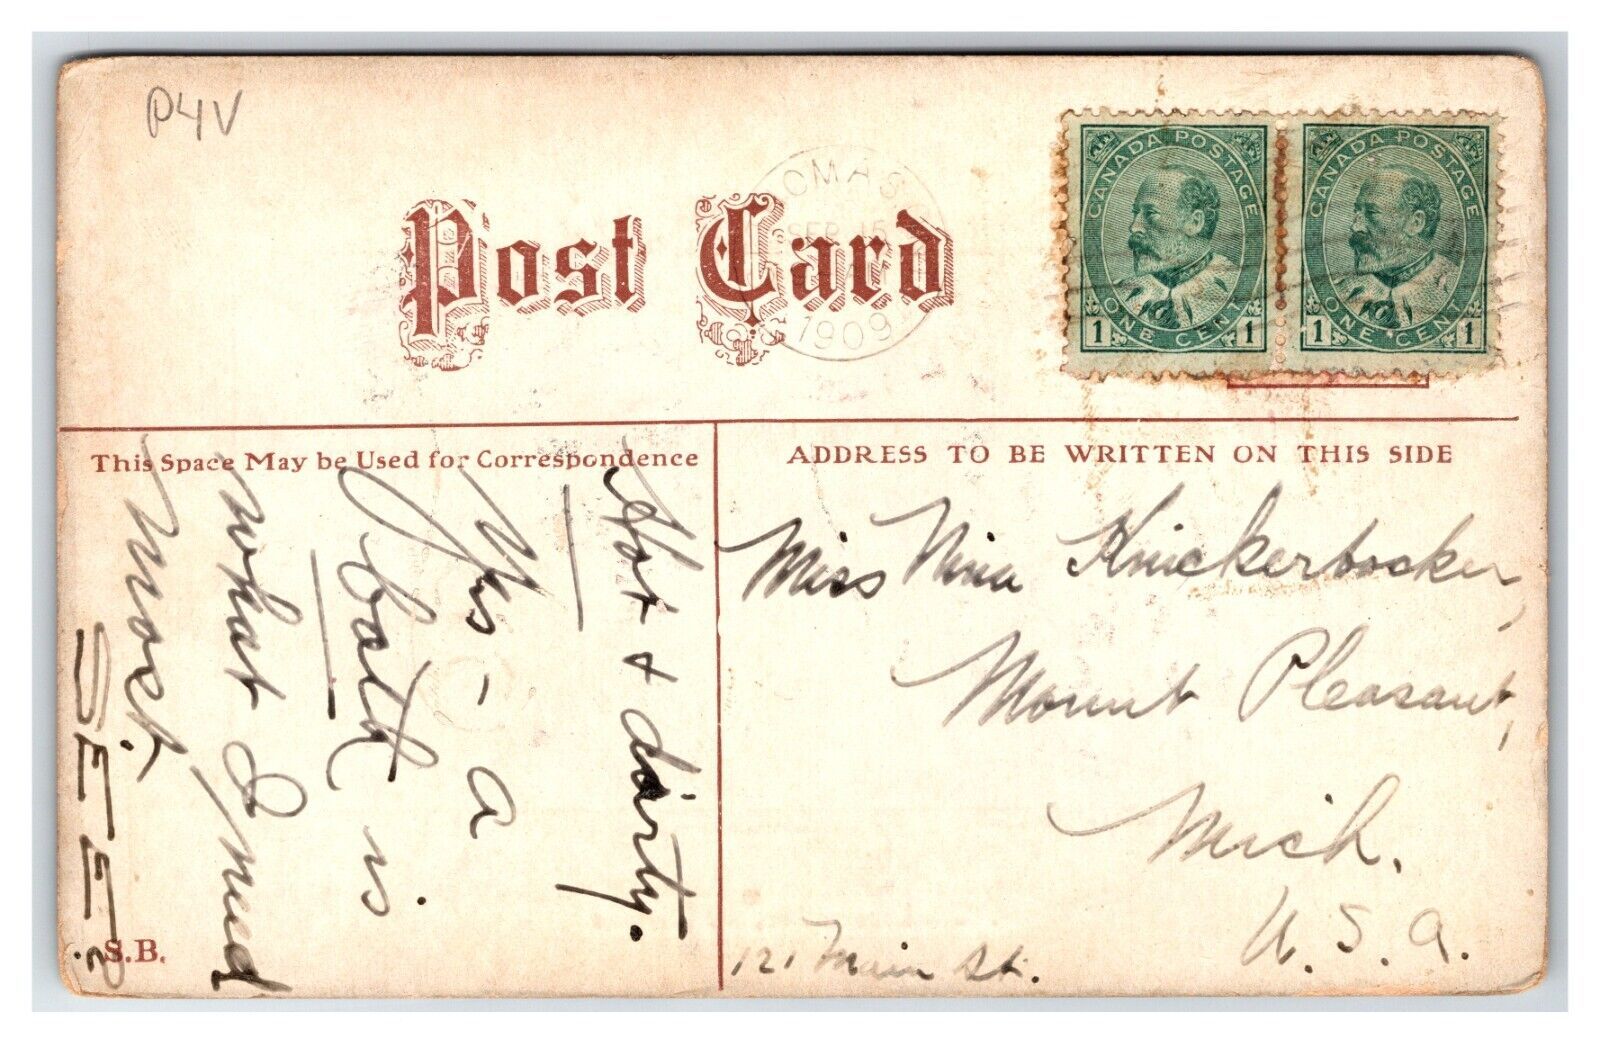 P4V
Post Card
OMAS
SEP 15
1909
CANADA POSTAGE
1 ONE CENT 1
CANADA POSTAGE
1 ONE CENT 1
This Space May be Used for Correspondence
ADDRESS TO BE WRITTEN ON THIS SIDE
Hot + dirty.
Yes - a
bath is
what I need
most.
S.E.E.E?
Miss Nina Knickerbocker,
Mount Pleasant,
Mich.
U.S.A.
121 Main St.
S.B.